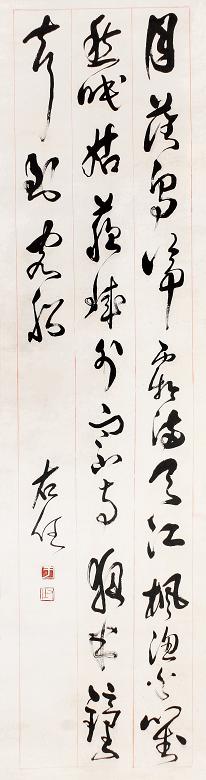 月落烏啼霜滿天江楓漁火對
愁眠姑蘇城外寒山寺夜半鐘
聲到客船
右任